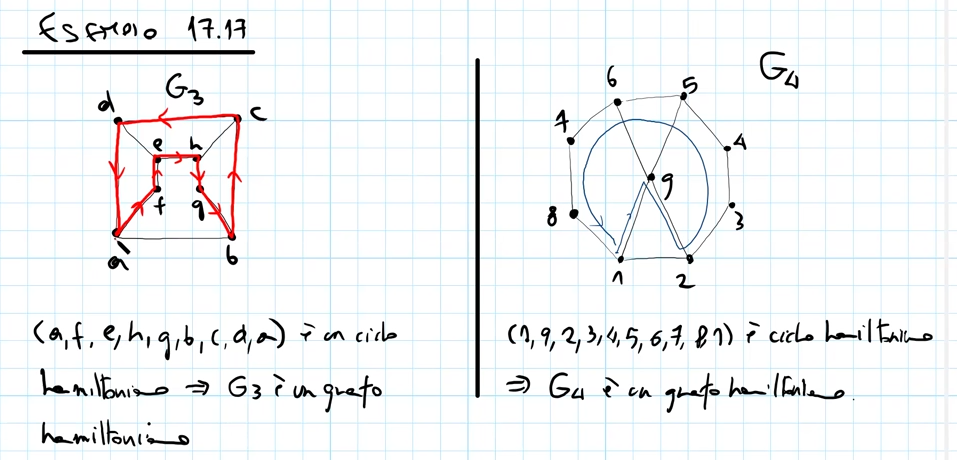 ESERCIZIO 17.17
G3
d
c
e
h
f
g
a
b
(a, f, e, h, g, b, c, d, a) è un ciclo
hamiltoniano ⇒ G3 è un grafo
hamiltoniano
G4
6
5
7
4
9
8
3
1
2
(1, 9, 2, 3, 4, 5, 6, 7, 8 1) è ciclo hamiltoniano
⇒ G4 è un grafo hamiltoniano.